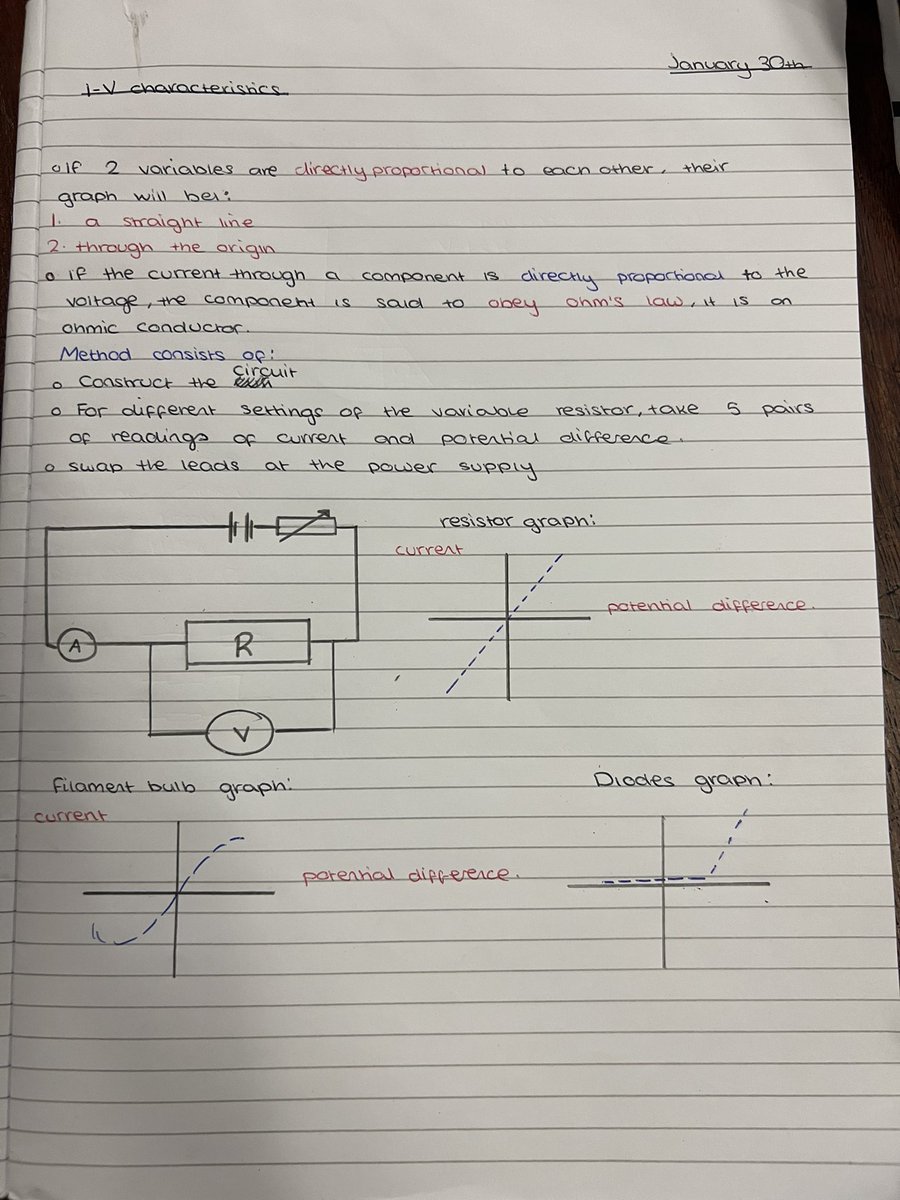 January 30th
I-V characteristics
If 2 variables are directly proportional to each other, their
graph will be:
1. a straight line
2. through the origin
if the current through a component is directly proportional to the
voltage, the component is said to obey ohm's law, it is an
ohmic conductor.
Method consists of:
Construct the circuit
For different settings of the variable resistor, take 5 pairs
of readings of current and potential difference.
swap the leads at the power supply
resistor graph:
current
potential difference.
A
R
V
Filament bulb graph:
Diodes graph:
current
potential difference.